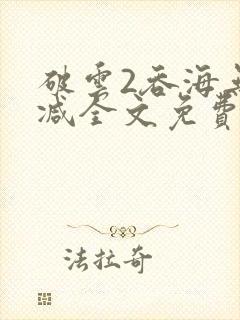 破雲2吞海
减全文免費
法拉奇